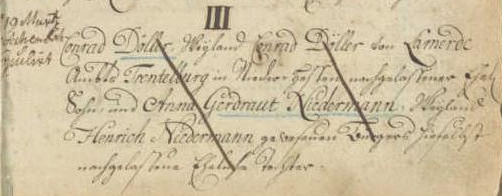 III
Conrad Döller, Weyland Conrad Döller von Lamerde
Ambts Trentelburg in Nieder Hessen nachgelassener Ehel.
Sohn, und Anna Gerdraut Niedermann, Weyland
Henrich Niedermann gewesenen Burgers hieselbst
nachgelassene Eheliche Tochter.